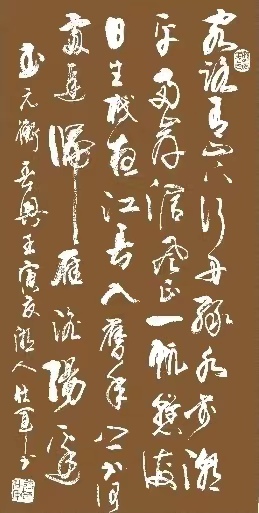 客路青山下行舟綠水前潮
平兩岸濶風正一帆懸海
日生殘夜江春入舊年鄉書何
處達歸雁洛陽邊
元衡春興壬寅夏人书